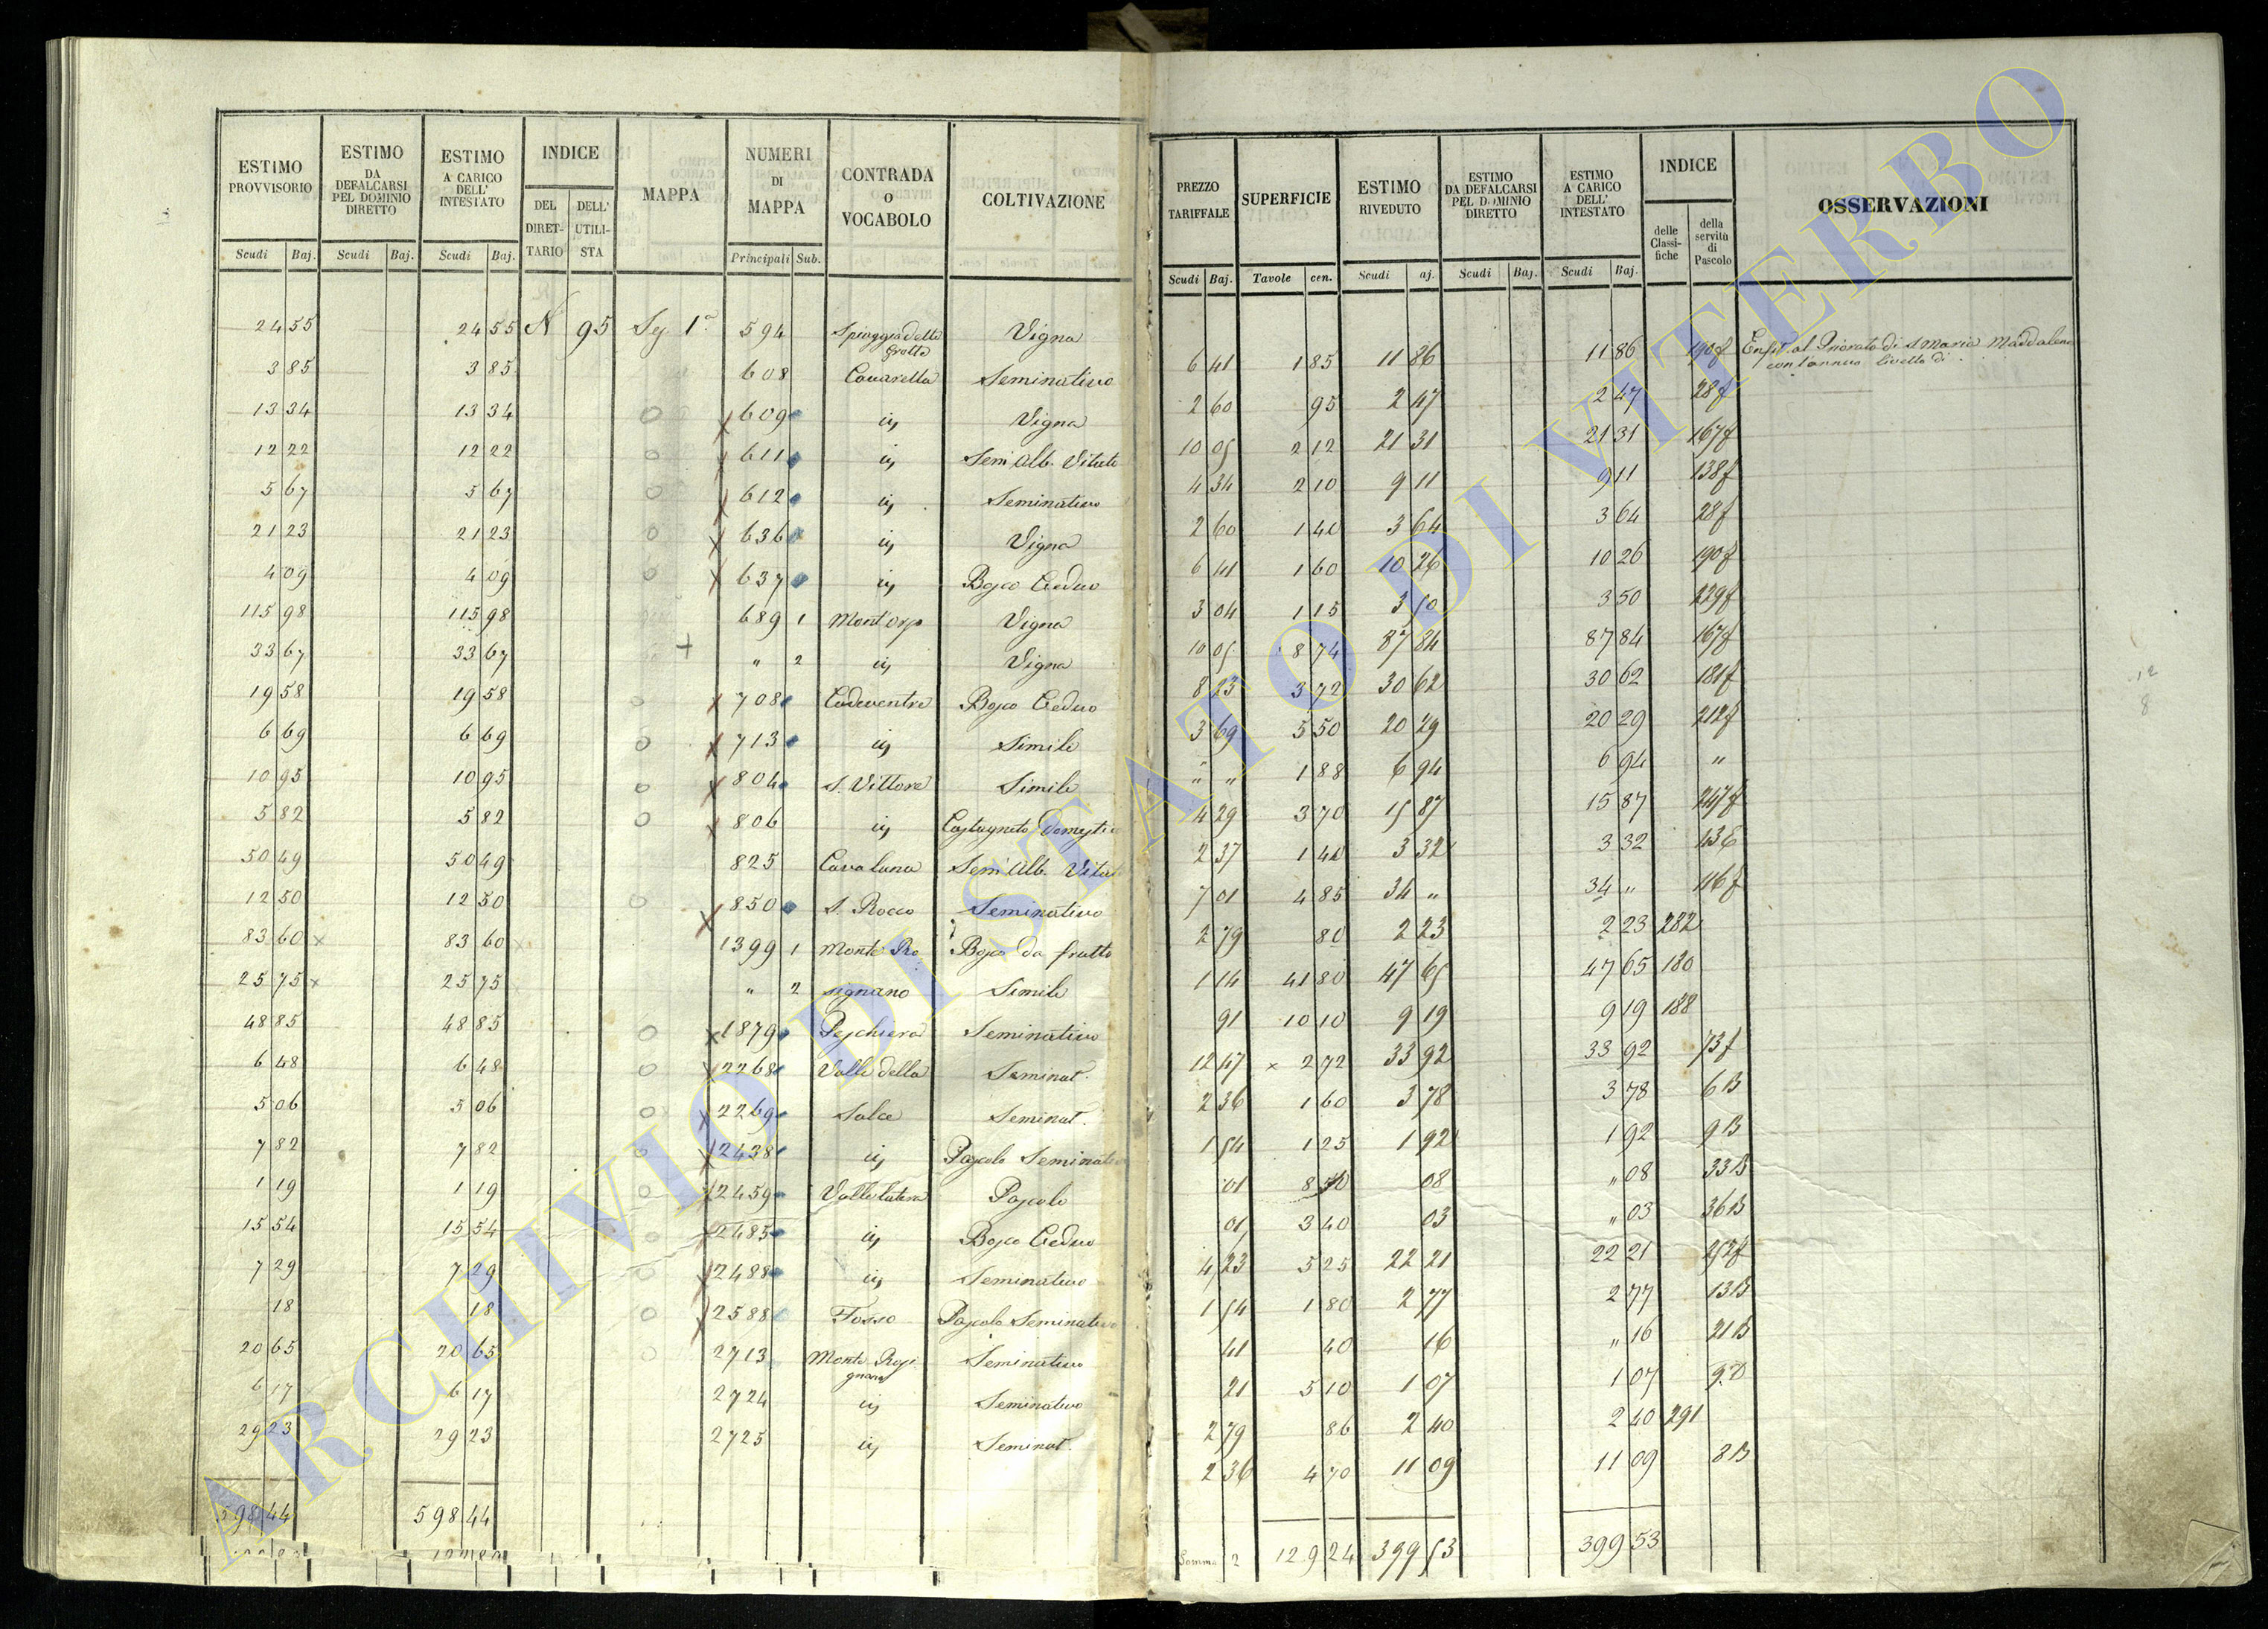 ESTIMO PROVVISORIO | ESTIMO DA DEFALCARSI PEL DOMINIO DIRETTO | ESTIMO A CARICO DELL' INTESTATO | INDICE | MAPPA | NUMERI DI MAPPA | CONTRADA O VOCABOLO | COLTIVAZIONE
DEL DIRETTARIO | DELL' UTILISTA
Scudi | Baj. | Scudi | Baj. | Scudi | Baj. | Principali | Sub.
24 55 | 24 55 | N | 95 | Sez 1a | 594 | Spiaggia della Grotta | Vigna
3 85 | 3 85 | 608 | Cavarella | Seminativo
13 34 | 13 34 | 609 | Vigna
12 22 | 12 22 | 611 | Sem Alb. Vitato
5 67 | 5 67 | 612 | Seminativo
21 23 | 21 23 | 636 | Vigna
4 09 | 4 09 | 637 | Bosco Ceduo
115 98 | 115 98 | 689 | 1 | Vigna
33 67 | 33 67 | " | 2 | Vigna
19 58 | 19 58 | 708 | Bosco Ceduo
6 69 | 6 69 | 713 | Simile
10 95 | 10 95 | 804 | S. Vittore | Simile
5 82 | 5 82 | 806 | Castagneto
50 49 | 50 49 | 825 | Cavaluna | Sem Alb. Vitat
12 50 | 12 50 | 850 | S. Rocco | Seminativo
83 60 x | 83 60 | 1399 | 1 | Monte Ro | Bosco da frutto
25 75 x | 25 75 | " | 2 | signano | Simile
48 85 | 48 85 | 1879 | Peschiera | Seminativo
6 48 | 6 48 | 2268 | Valle della | Seminat.
5 06 | 5 06 | 2269 | Salce | Seminat.
7 82 | 7 82 | 2438 | Pascolo Seminativo
1 19 | 1 19 | 2459 | Pascolo
15 54 | 15 54 | 2485 | Bosco Ceduo
7 29 | 7 29 | 2488 | Seminativo
18 | 18 | 2588 | Fosso | Pascolo Seminativo
20 65 | 20 65 | 2713 | Monte Rosignano | Seminativo
6 17 | 6 17 | 2724 | Seminativo
29 23 | 29 23 | 2725 | Seminat.
598 44 | 598 44
PREZZO TARIFFALE | SUPERFICIE | ESTIMO RIVEDUTO | ESTIMO DA DEFALCARSI PEL DOMINIO DIRETTO | ESTIMO A CARICO DELL' INTESTATO | INDICE | OSSERVAZIONI
delle Classifiche | della servitù di Pascolo
Scudi | Baj. | Tavole | cen. | Scudi | aj. | Scudi | Baj. | Scudi | Baj.
6 41 | 1 85 | 11 86 | 11 86 | 190 f | Enfit. al Priorato di S Maria Maddalena
con l'annuo livello di
2 60 | 95 | 2 47 | 2 47 | 28 f
10 05 | 2 12 | 21 31 | 21 31 | 167 f
4 34 | 2 10 | 9 11 | 9 11 | 138 f
2 60 | 1 40 | 3 64 | 3 64 | 28 f
6 41 | 1 60 | 10 26 | 10 26 | 190 f
3 04 | 1 15 | 3 50 | 3 50 | 229 f
10 05 | 8 74 | 87 84 | 87 84 | 167 f
8 23 | 3 72 | 30 62 | 30 62 | 181 f
3 69 | 5 50 | 20 29 | 20 29 | 212 f
" " | 1 88 | 6 94 | 6 94 | "
4 29 | 3 70 | 15 87 | 15 87 | 247 f
2 37 | 1 40 | 3 32 | 3 32 | 13 E
7 01 | 4 85 | 34 " | 34 " | 116 f
2 79 | 80 | 2 23 | 2 23 | 282
1 14 | 41 80 | 47 65 | 47 65 | 180
91 | 10 10 | 9 19 | 9 19 | 188
12 47 | x 2 72 | 33 92 | 33 92 | 73 f
2 36 | 1 60 | 3 78 | 3 78 | 6 B
1 54 | 1 25 | 1 92 | 1 92 | 9 B
01 | 8 50 | 08 | " 08 | 33 B
01 | 3 40 | 03 | " 03 | 36 B
4 23 | 5 25 | 22 21 | 22 21 | 252 f
1 54 | 1 80 | 2 77 | 2 77 | 13 B
41 | 40 | 16 | " 16 | 21 B
21 | 5 10 | 1 07 | 1 07 | 9 D
2 79 | 86 | 2 40 | 2 40 | 291
2 36 | 4 70 | 11 09 | 11 09 | 8 B
Somma 2 | 129 24 | 399 53 | 399 53
12
8
ARCHIVIO DI STATO DI VITERBO